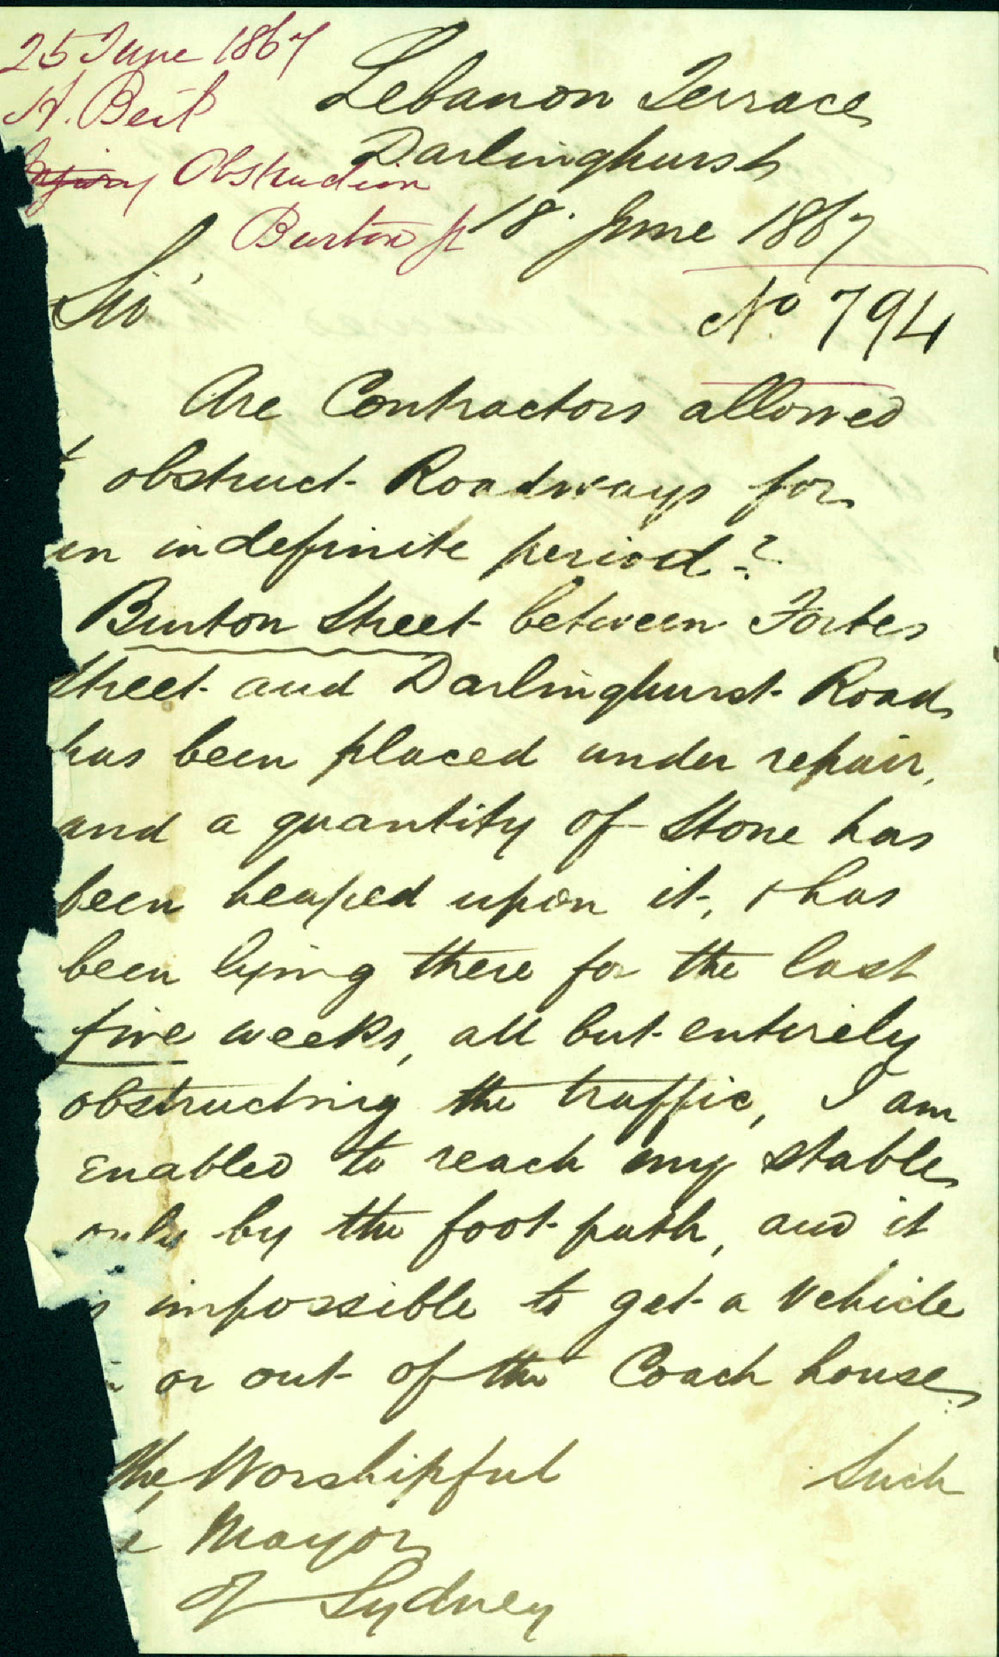 25 June 1867
H. Beit
Injury Obstruction
Burton St
Lebanon Terrace
Darlinghurst
18 June 1867
No 794
Sir
Are Contractors allowed
obstruct Roadways for
an indefinite period?
Burton Street between Forbes
Street and Darlinghurst Road
has been placed under repair,
and a quantity of Stone has
been heaped upon it, & has
been lying there for the last
five weeks, all but entirely
obstructing the traffic, I am
enabled to reach my stable
only by the foot path, and it
is impossible to get a vehicle
or out of the Coach house.
Such
The Worshipful
Mayor
of Sydney